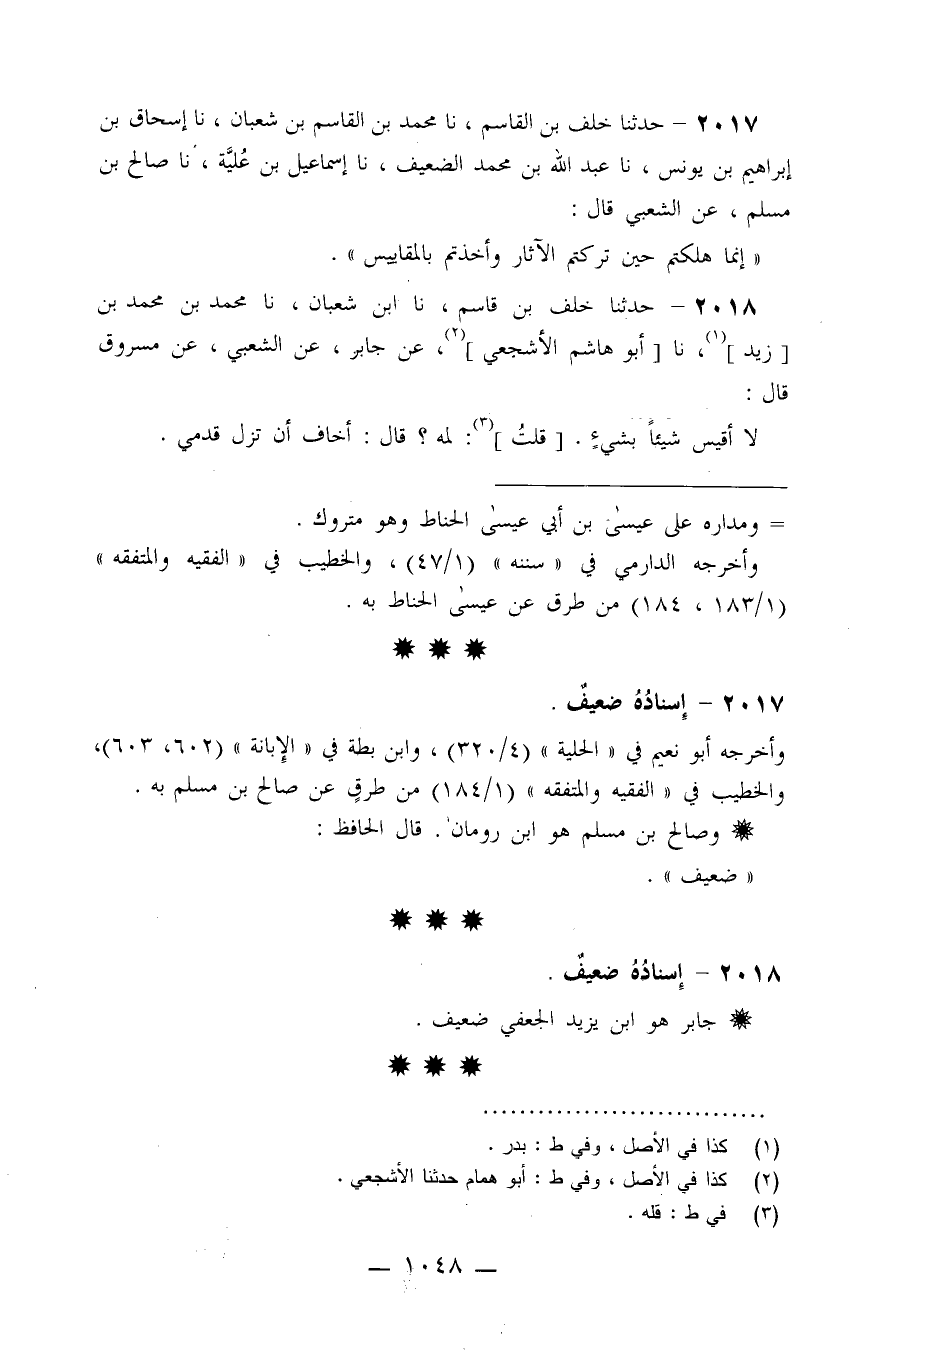 ٢٠١٧ – حدثنا خلف بن القاسم ، نا محمد بن القاسم بن شعبان ، نا إسحاق بن
إبراهيم بن يونس ، نا عبد الله بن محمد الضعيف ، نا إسماعيل بن عُليَّة ، نا صالح بن
مسلم ، عن الشعبي قال :
« إنما هلكتم حين تركتم الآثار وأخذتم بالمقاييس » .
٢٠١٨ – حدثنا خلف بن قاسم ، نا ابن شعبان ، نا محمد بن محمد بن
[ زيد ](١)، نا [ أبو هاشم الأشجعي ](٢)، عن جابر ، عن الشعبي ، عن مسروق
قال :
لا أقيس شيئاً بشيءٍ . [ قلتُ ](٣): لمه ؟ قال : أخاف أن تزل قدمي .
= ومداره على عيسىٰ بن أبي عيسىٰ الحناط وهو متروك .
وأخرجه الدارمي في « سننه » (٤٧/١) ، والخطيب في « الفقيه والمتفقه »
(١٨٣/١ ، ١٨٤) من طرق عن عيسىٰ الحناط به .
٢٠١٧ – إسنادُهُ ضعيفٌ .
وأخرجه أبو نعيم في « الحلية » (٣٢٠/٤) ، وابن بطة في « الإبانة » (٦٠٢، ٦٠٣)،
والخطيب في « الفقيه والمتفقه » (١٨٤/١) من طرقٍ عن صالح بن مسلم به .
وصالح بن مسلم هو ابن رومان . قال الحافظ :
« ضعيف » .
٢٠١٨ – إسنادُهُ ضعيفٌ .
جابر هو ابن يزيد الجعفي ضعيف .
..............................
(١) كذا في الأصل ، وفي ط : بدر .
(٢) كذا في الأصل ، وفي ط : أبو همام حدثنا الأشجعي .
(٣) في ط : قله .
— ١٠٤٨ —